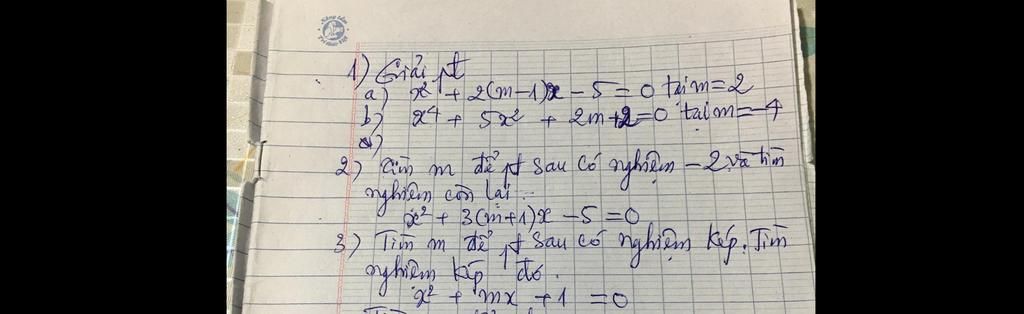 1) Giải pt
a) x² + 2(m-1)x - 5 = 0 tại m = 2
b) x⁴ + 5x² + 2m+2=0 tại m=-4
2) Tìm m để pt sau có nghiệm -2 và tìm
nghiệm còn lại :
x² + 3(m+1)x - 5 = 0
3) Tìm m để pt sau có nghiệm kép. Tìm
nghiệm kép đó.
x² + mx + 1 = 0